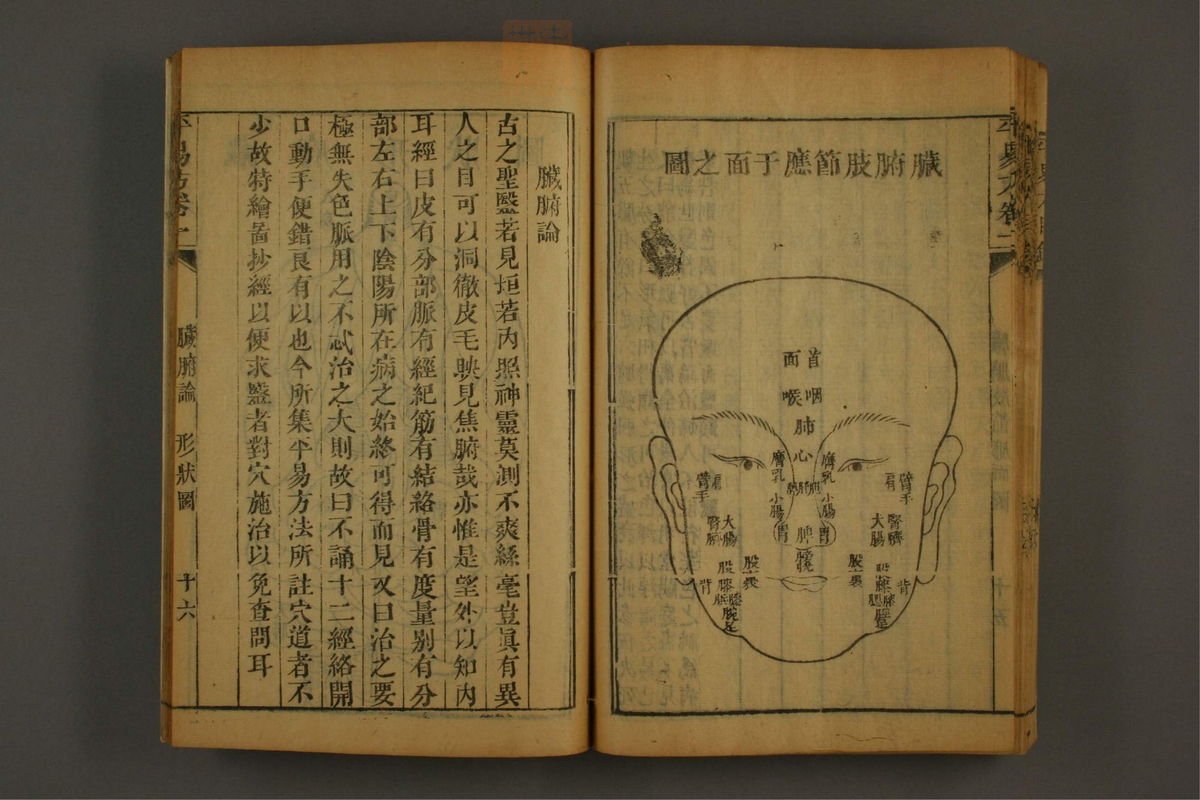 臟腑肢節應于面之圖
首面
咽喉
肺
心
膺乳
膺乳
肝
膽
小腸
小腸
肩
臂手
肩
臂手
胃
脾
胃
大腸
腎臍
大腸
腎臍
膀
股裏
股裏
背
背
股
膝
股
膝
脛
足
臟腑論
古之聖毉若見垣若內照神靈莫測不爽絲毫豈眞有異
人之目可以洞徹皮毛映見焦腑哉亦惟是望外以知內
耳經曰皮有分部脈有經紀筋有結絡骨有度量别有分
部左右上下陰陽所在病之始終可得而見又曰治之要
極無失色脈用之不忒治之大則故曰不誦十二經絡開
口動手便錯良有以也今所集平易方法所註穴道者不
少故特繪啚抄經以便求毉者對穴施治以免查問耳
平易方卷二
臟腑論 形狀圖
十六